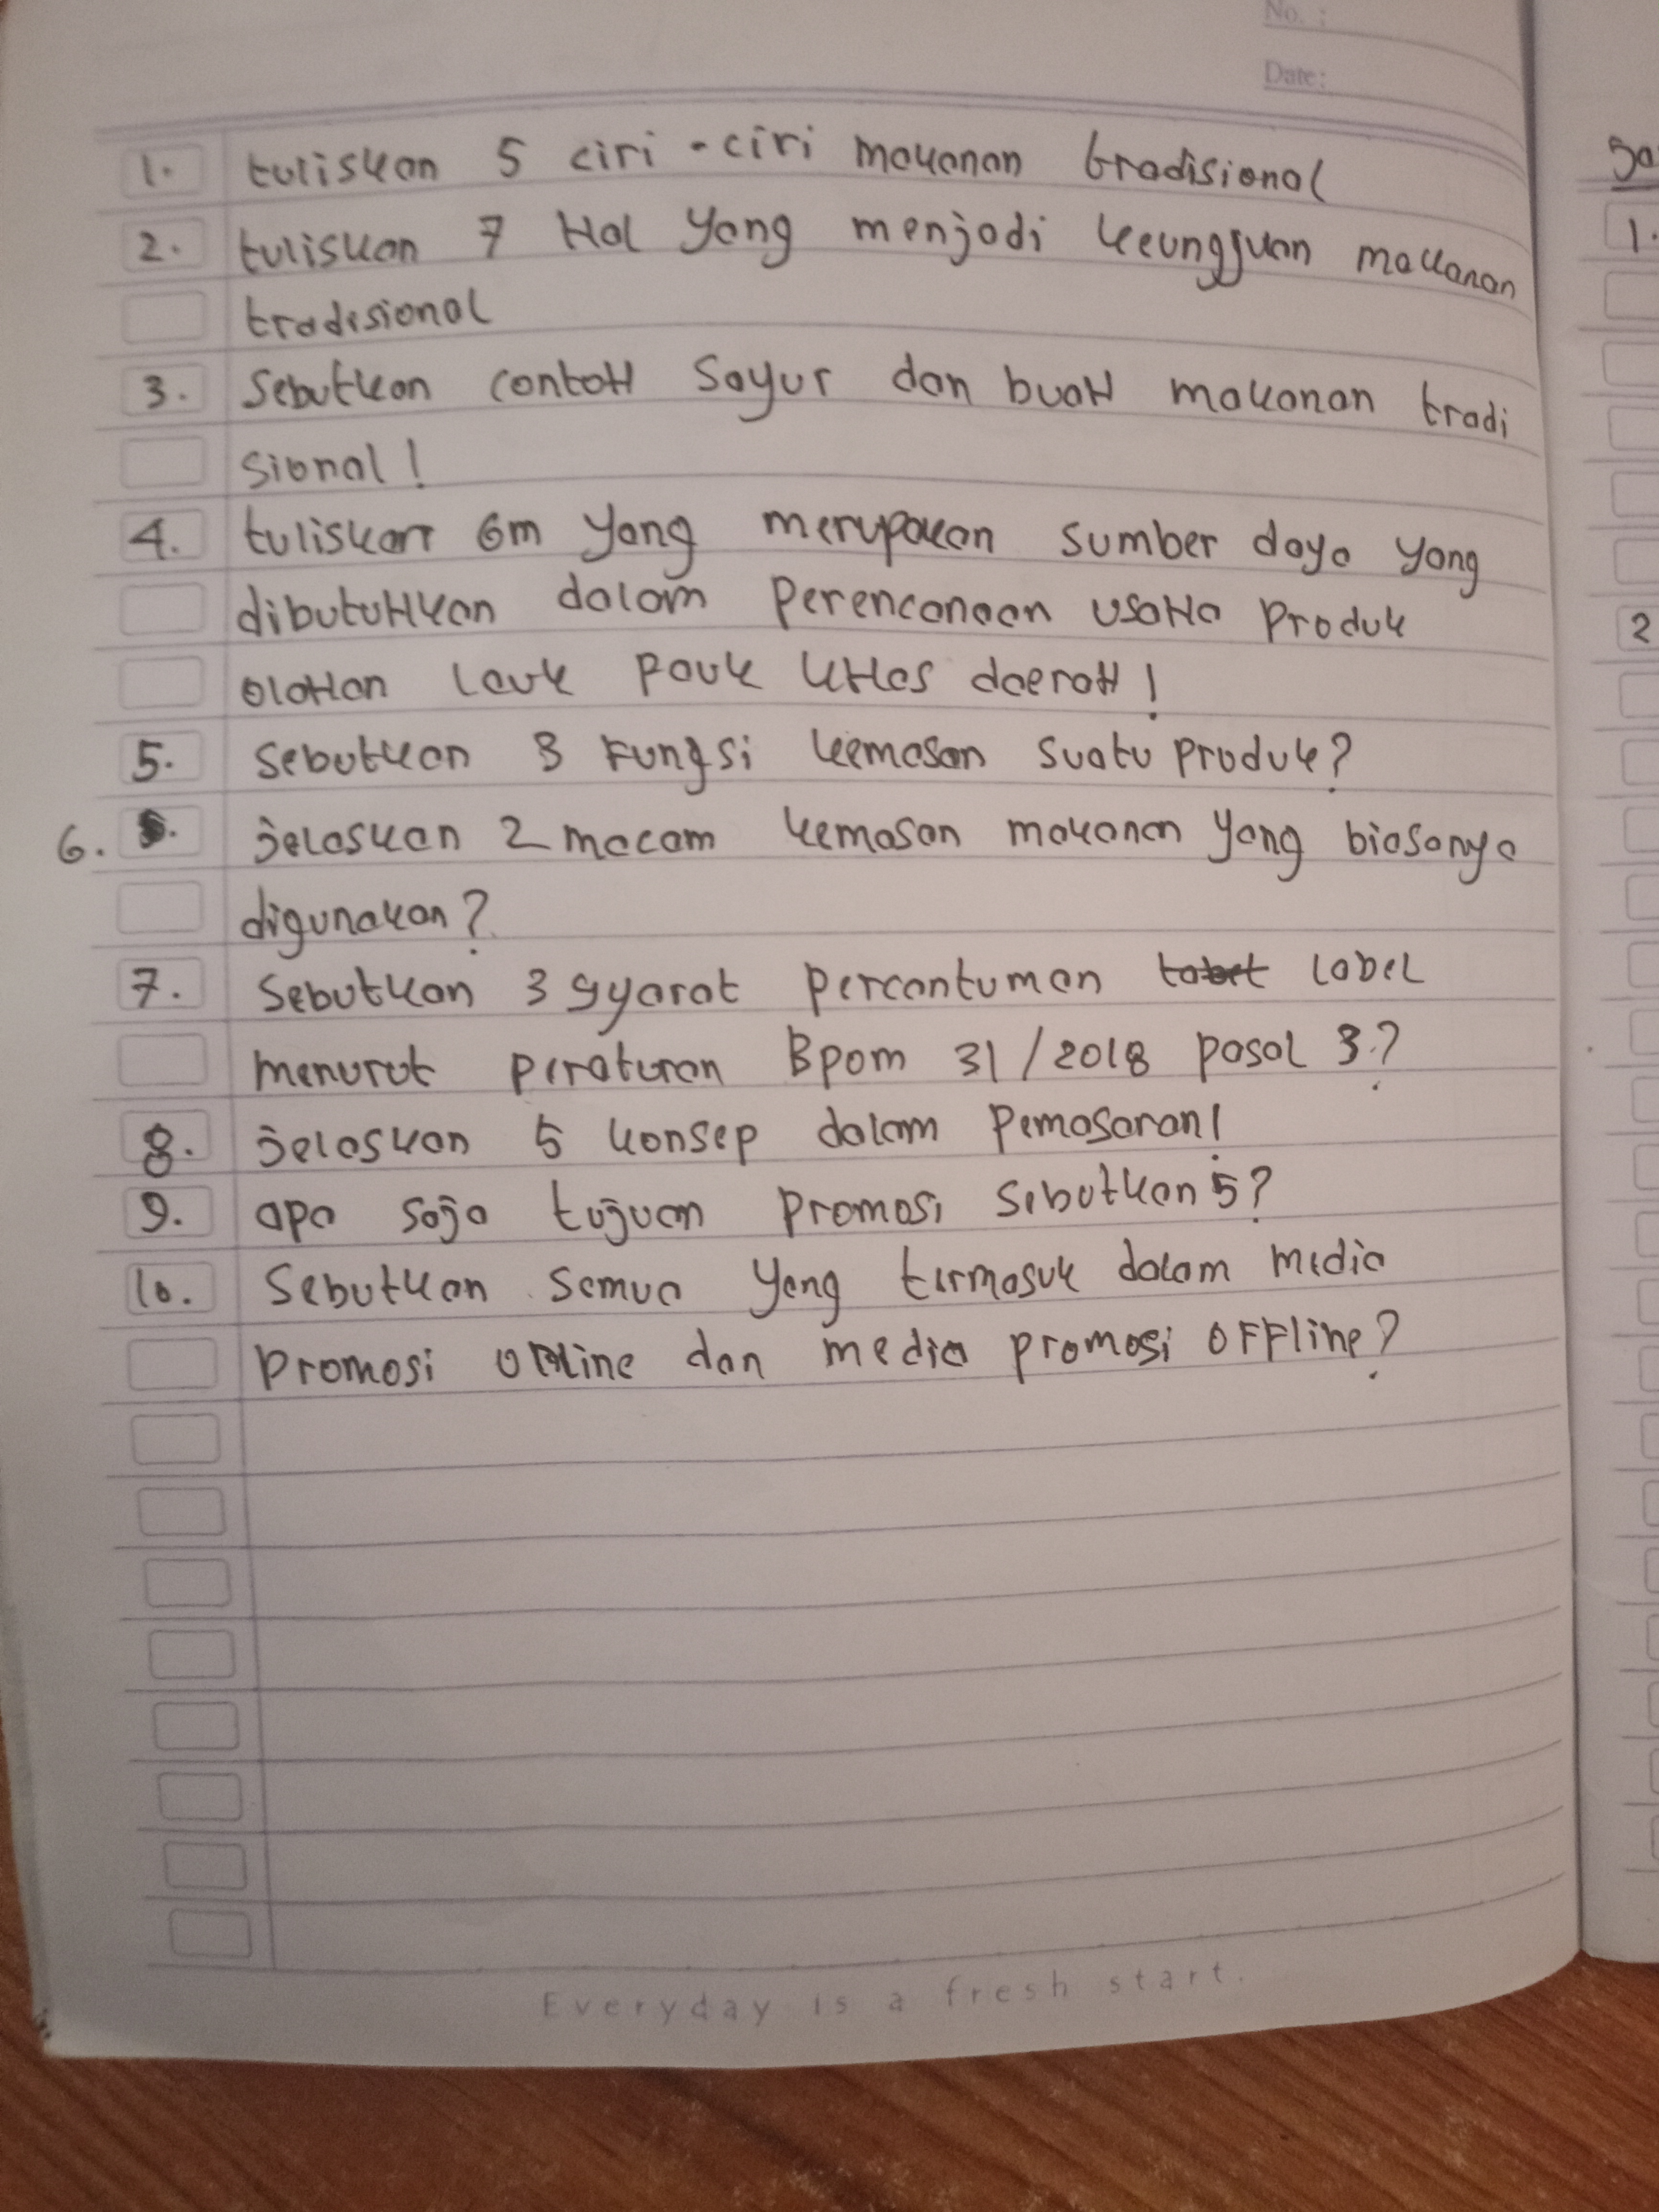 No. :
Date:
1. tuliskan 5 ciri-ciri makanan tradisional
2. tuliskan 7 Hal yang menjadi keunggúan makanan
tradisional
3. Sebutkan contoH Sayur dan buaH makanan tradi
sional!
4. tuliskan 6m yang merupakan sumber daya yang
dibutuHkan dalam Perencanaan usaHa Produk
olaHan lauk Pauk kHas daeraH!
5. Sebutkan 3 Fungsi kemasan suatu produk?
6. jelaskan 2 macam kemasan makanan yang biasanya
digunakan?
7. Sebutkan 3 syarat percantuman label
menurut peraturan Bpom 31/2018 pasal 3?
8. jelaskan 5 konsep dalam Pemasaran!
9. apa saja tujuan promosi sebutkan 5?
10. Sebutkan semua yang termasuk dalam media
promosi online dan media promosi oFFline?
Everyday is a fresh start.
1.
2